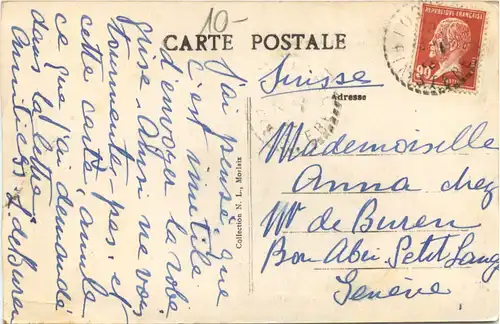 10-
CARTE POSTALE
RÉPUBLIQUE FRANÇAISE
90
Suisse
Adresse
Mademoiselle
Anna chez
Mr de Buren
Bon Abri Petit Sang
Genève
Collection N. L., Morlaix
J'ai pensé que
c'est inutile
d'envoyer la robe
grise. Ainsi ne vous
tourmentez pas, et
cette carte annule
ce que j'ai demandé
dans la lettre
Amitiés L. de Buren